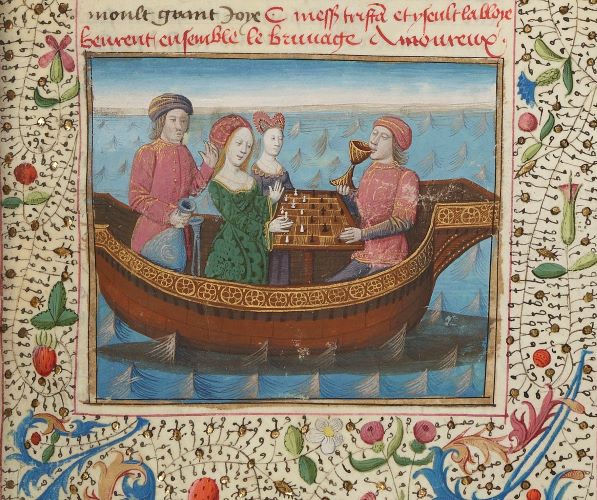 moult grant Joye ¶ mess tristã et yseult la bloye
beurent ensemble le bruuage Amoureux.